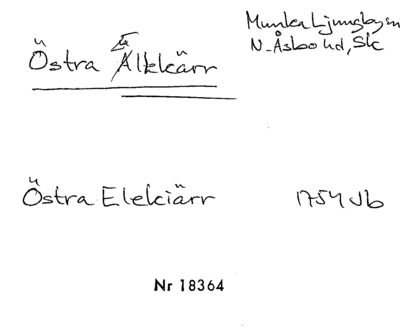 Munka Ljungbysn
N. Åsbo hd, Sk
Östra Älkkärr
Östra Elekiärr 1754 Jb
Nr 18364